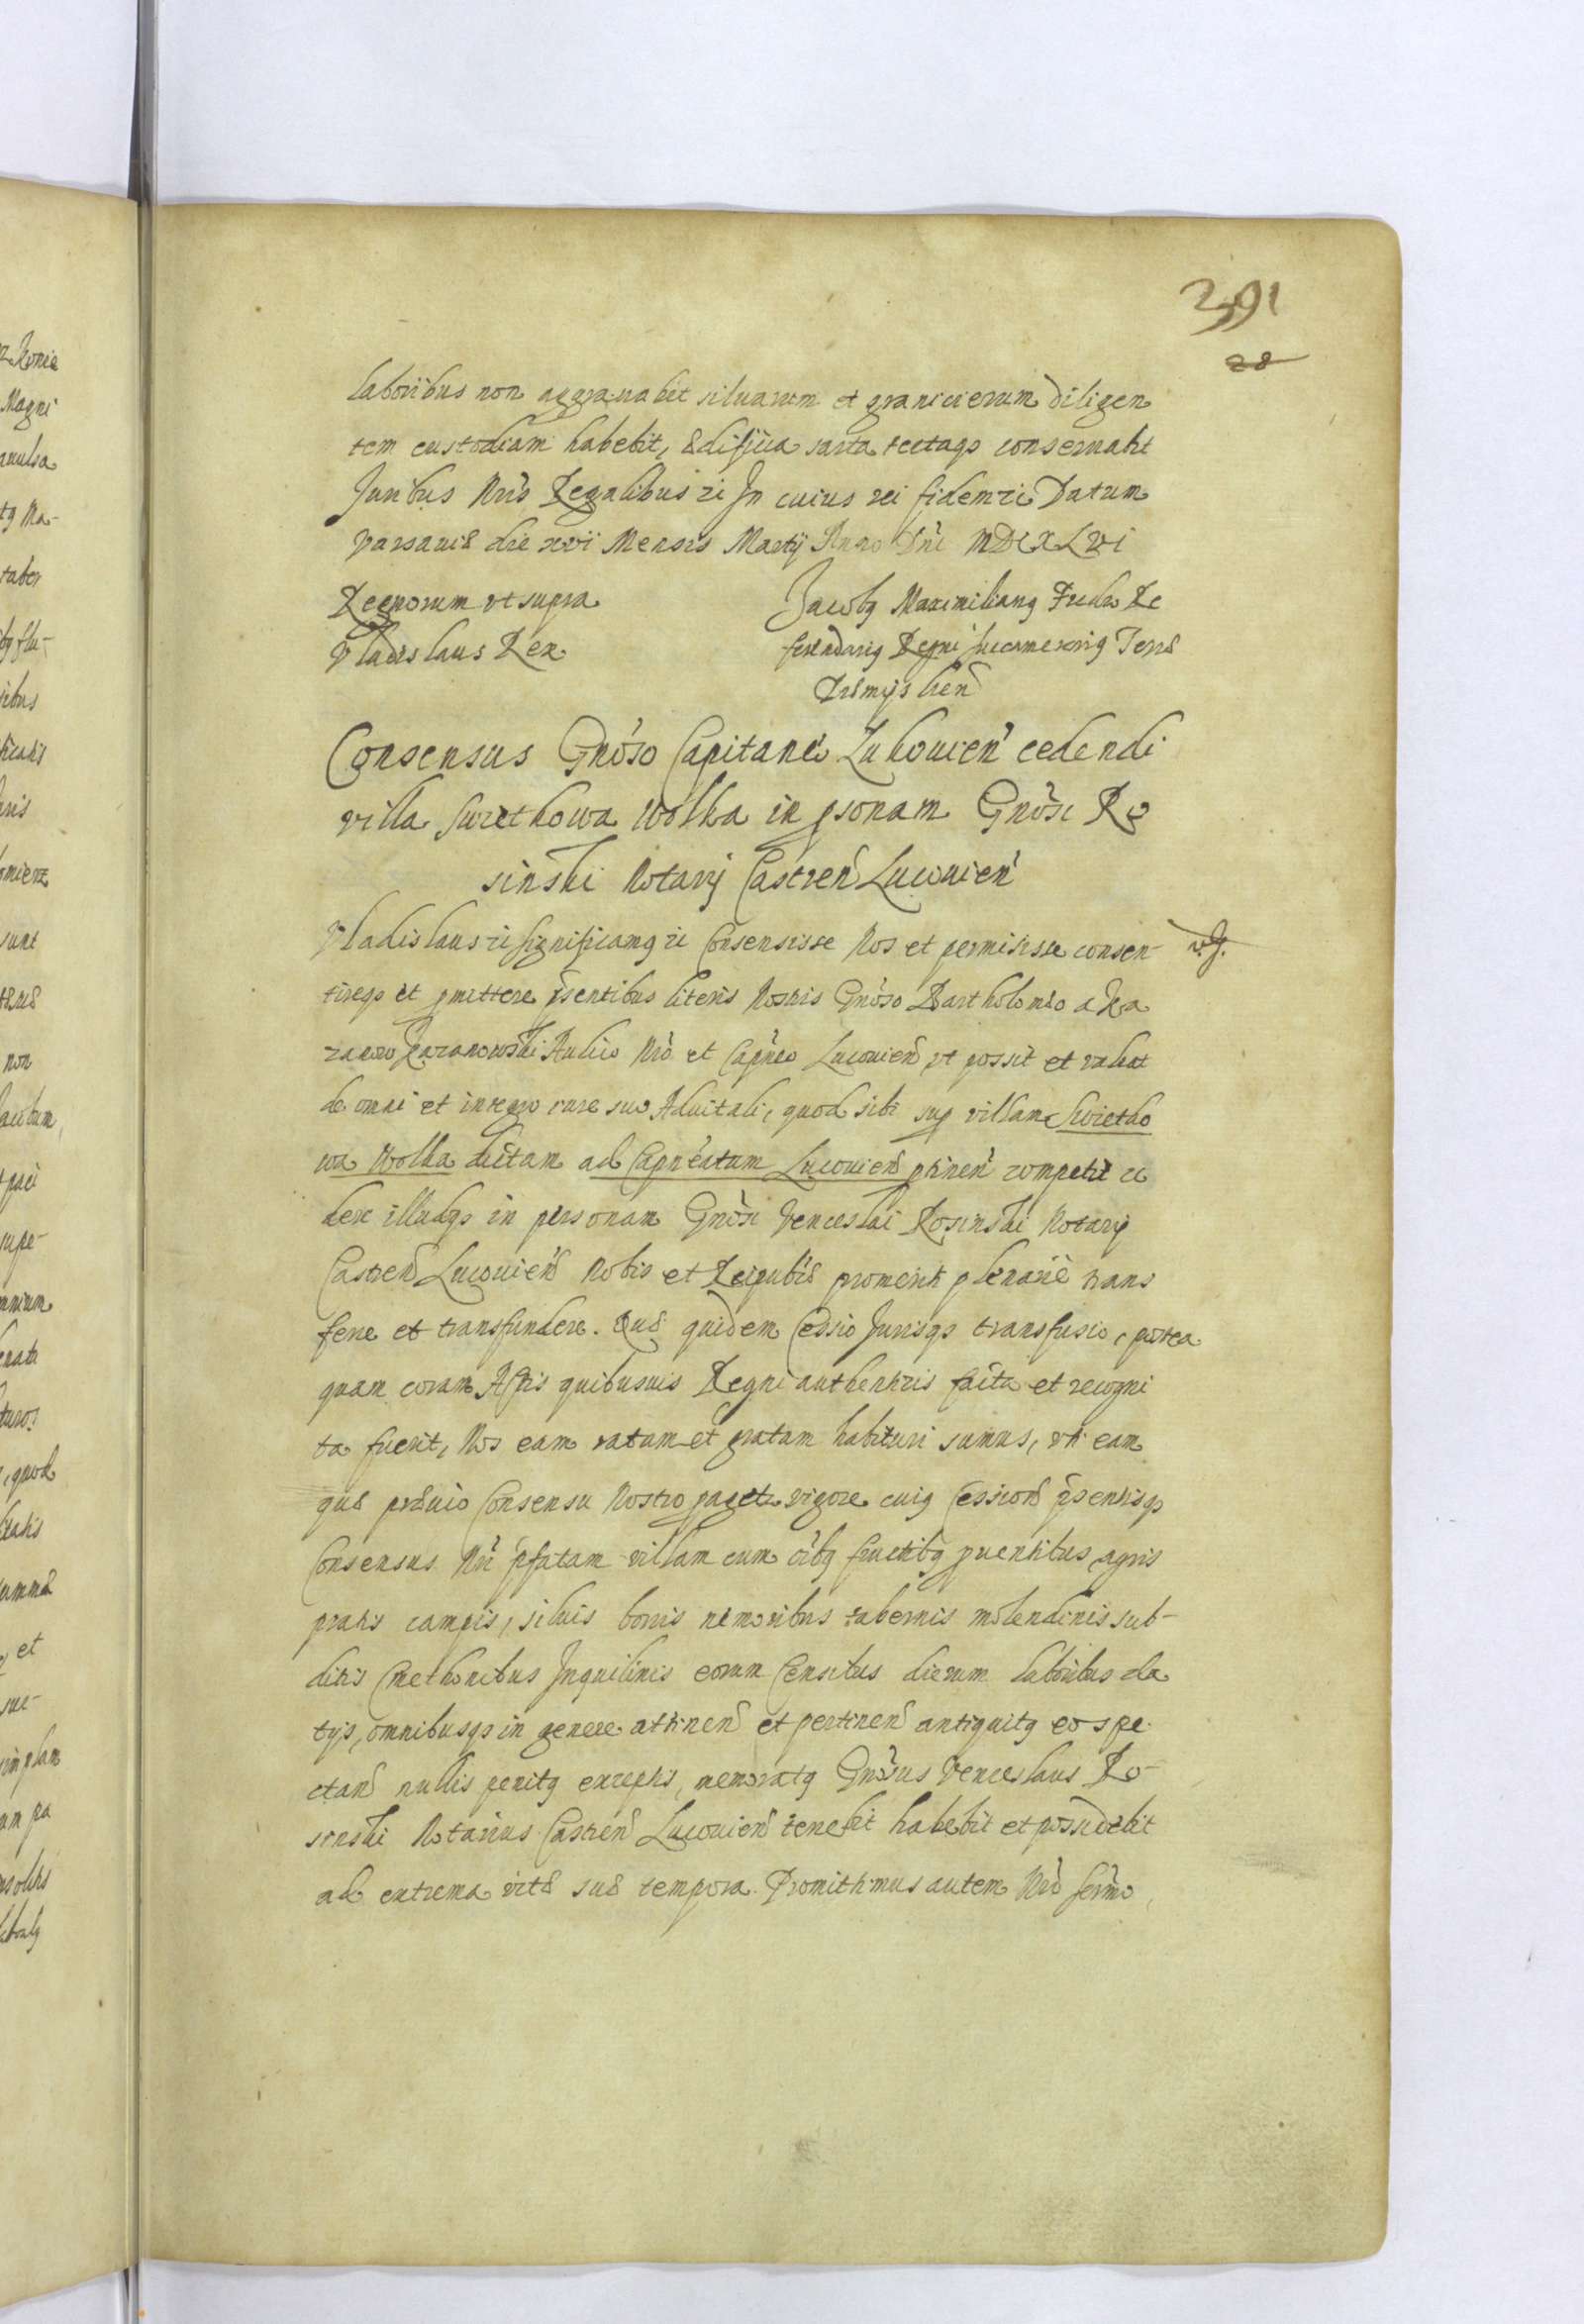 391
28
laboribus non aggrauabit siluarum et granicierum diligen
tem custodiam habebit, ædificia sarta tectaqȝ conseruabit
Juribus Nris Regalibus ꝛc̃ In cuius rei fidem ꝛc̃ Datum
Varsauiæ die xvi Mensis Martij Anno Dni MDCXLVI
Regnorum vt supra Jacobꝰ Maximilianꝰ Fredro Re
Vladislaus Rex ferendariꝰ Regni succamerariꝰ Terræ
Præmijslien
Consensus Gnoso Capitaneo Lukouien cedendi
villa Swiethowa Wolka in psonam Gnosi Ro
sinski Notarij Castren Lucouien
Vladislaus ꝛc̃ significamꝰ ꝛc̃ Consensisse Nos et permisisse consen-
tireqȝ et pmittere psentibus literis Nostris Gnoso Bartholomeo a Ka
zanow Kazanowski Aulico Nro et Capneo Lucouien vt possit et valeat
de omni et integro iure suo Aduitali, quod sibi sup villam Swietho
wa Wolka dictam ad Capneatum Lucouien ptinen competit ce
dere illudqȝ in personam Gnosi Venceslai Rosinski Notarij
Castren Lucouien Nobis et Reipublæ promeriti plenarie trans
ferre et transfundere. Quæ quidem Cessio Jurisqȝ transfusio, postea
quam coram Actis quibusuis Regni authenticis facta et recogni
ta fuerit, Nos eam ratam et gratam habituri sumus, vti eam
quæ præuio Consensu Nostro pagetur vigore cuiꝰ Cessionis psentisqȝ
Consensus Nri pfatam villam cum oibꝰ fructibꝰ puentibus, agris
pratis campis, siluis boris nemoribus tabernis molendinis sub-
ditis Cmethonibus Inquilinis eorum Censibus dierum laboribus da
tijs, omnibusqȝ in genere attinen et pertinen antiquitꝰ eo spe
ctan nullis penitꝰ exceptis, memoratꝰ Gnosus Venceslaus Ro-
sinski Notarius Castren Lucouien tenebit habebit et possidebit
ad extrema vitæ suæ tempora. Promittimus autem Nro Sermo,